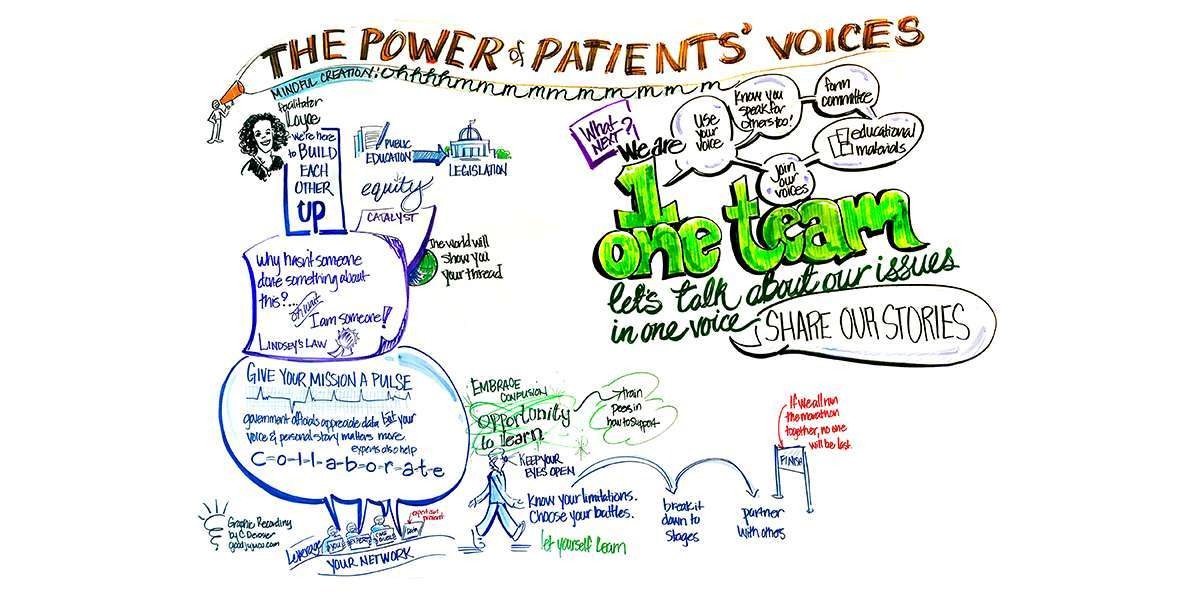 THE POWER of PATIENTS' VOICES
MINDFUL CREATION: Ohhhhmmmmmmmmmm
facilitator
Loyce
we're here
to BUILD
EACH
OTHER
UP
PUBLIC
EDUCATION
LEGISLATION
equity
CATALYST
The world will
show you
your thread
why hasn't someone
done something about
this?...
oh wait
I am someone!!
LINDSEY'S LAW
GIVE YOUR MISSION A PULSE
government officials appreciate data but your
voice & personal story matters more.
experts also help
C-o-l-l-a-b-o-r-a-t-e
Leverage
YOUR NETWORK
Graphic Recording
goodjujuco.com
What
NEXT?
We are
use
your
voice
Know you
speak for
others too!
form
committee
educational
materials
join
our
voices
1
one team
let's talk about our issues
in one voice
SHARE OUR STORIES
EMBRACE
CONFUSION
opportunity
to learn
train
peers in
how to support
KEEP YOUR
EYES OPEN
Know your limitations.
Choose your battles.
let yourself learn
break it
down to
stages
partner
with others
If we all run
the marathon
together, no one
will be last.
FINISH